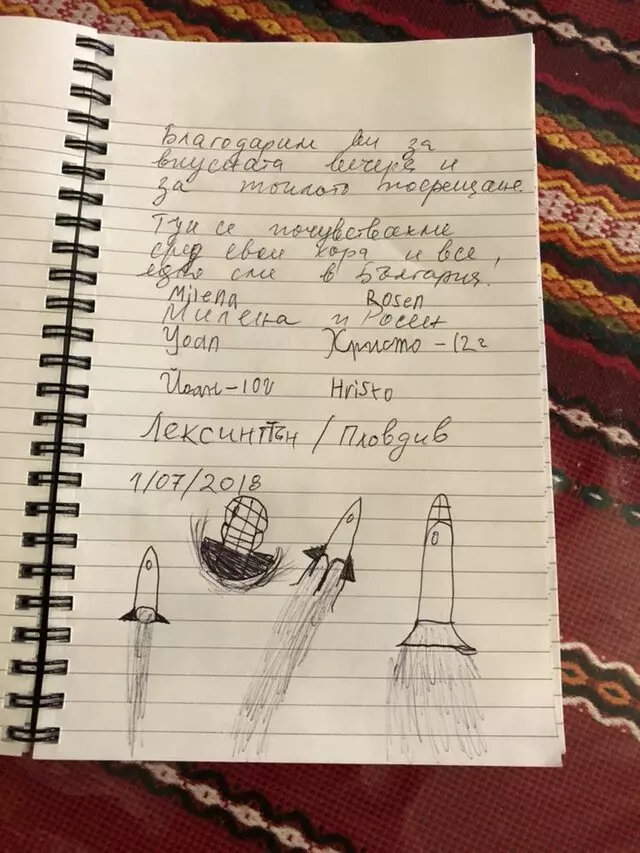 Благодарим Ви за
вкусната вечеря и
за топлото посрещане.
Тук се почувствахме
сред свои хора и все
едно сме в България.
Milena Rosen
Милена и Росен
Yoan Христо – 12г
Йоан – 10г Hristo
Лексингтън / Пловдив
1/07/2018